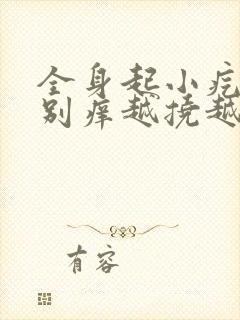 全身起小疙
别痒越挠越
有容